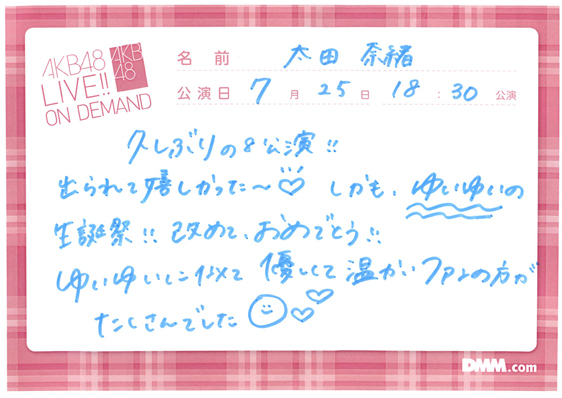 AKB48
LIVE!!
ON DEMAND
AKB
48
名前 太田 奈緒
公演日 7月25日 18:30 公演
久しぶりの8公演!!
出られて嬉しかった〜♡ しかも、ゆいゆいの
生誕祭!! 改めて、おめでとう!!
ゆいゆいに似て 優しくて 温かいファンの方が
たくさんでした
DMM.com